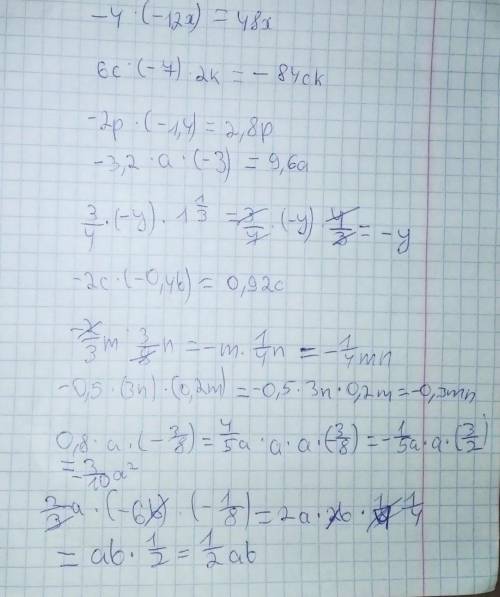 -4 · (-12x) = 48x
6c · (-7) · 2k = -84ck
-2p · (-1,4) = 2,8p
-3,2 · a · (-3) = 9,6a
3/4 · (-y) · 1 1/3 = 3/4 · (-y) · 4/3 = -y
-2c · (-0,46) = 0,92c
-2/3 m · 3/8 n = -m · 1/4 n = -1/4 mn
-0,5 · (3n) · (0,2m) = -0,5 · 3n · 0,2m = -0,3mn
0,8 · a · (-3/8) = 4/5 a · a · a · (3/8) = -1/5 a · a · (3/2)
= -3/10 a²
2/3 a · (-6b) · (-1/8) = 2a · 2b · 1/4
= ab · 1/2 = 1/2 ab